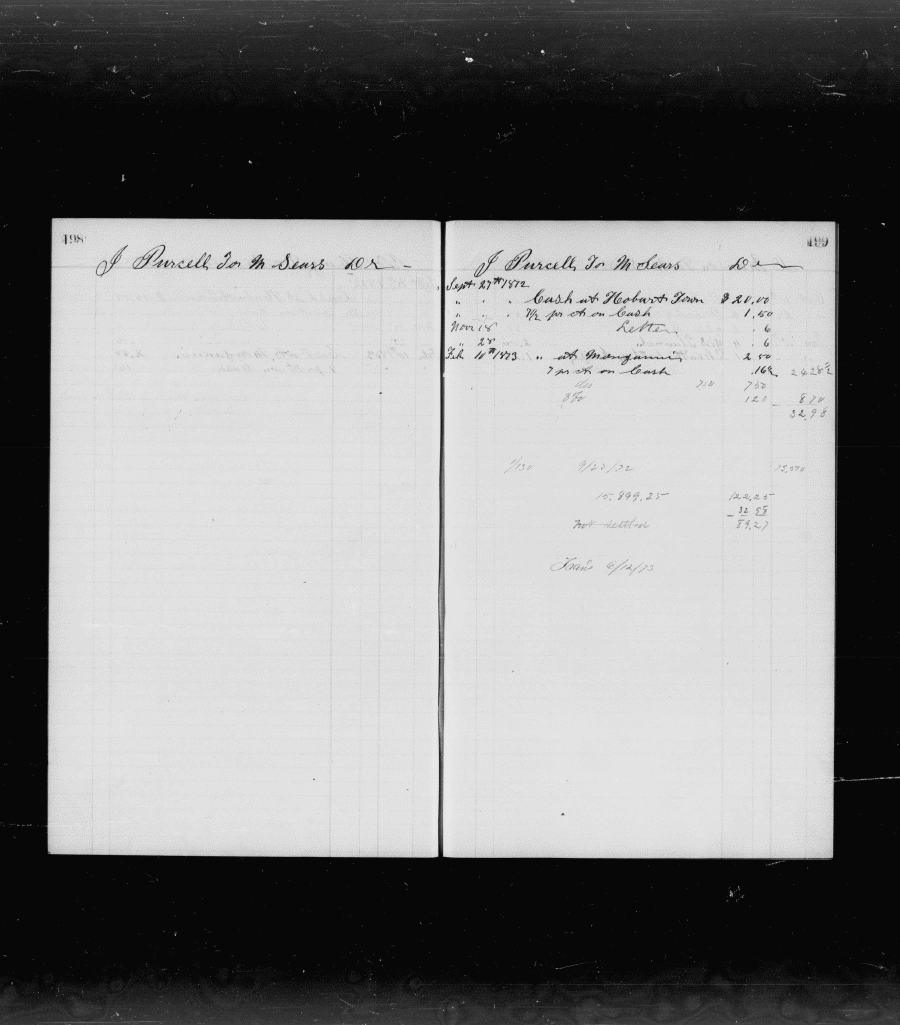 198
J Purcell To M Sears Dr
199
J Purcell To M Sears Dr
Sept 27th 1872
" " " Cash at Hobart Town $ 20.00
" " " 7 1/2 pr ct on Cash 1.50
Nov 18 Letter . 6
" 28 . 6
Feb 10th 1873 " at Monganui 2 50
7 pr ct on Cash
710 750
120 870
32.98
1/130 9/23/72
15.899.25 122.25
32 98
not settled 89.27
6/12/73